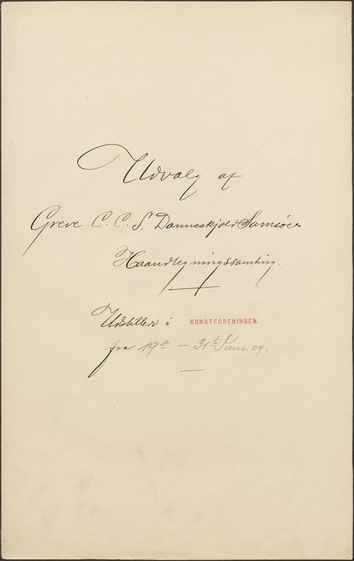 Udvalg af
Greve C. C. S. Danneskjold Samsøes
Haandtegningssamling.
Udstillet i KUNSTFORENINGEN
fra 19de — 31te Janr. 04.